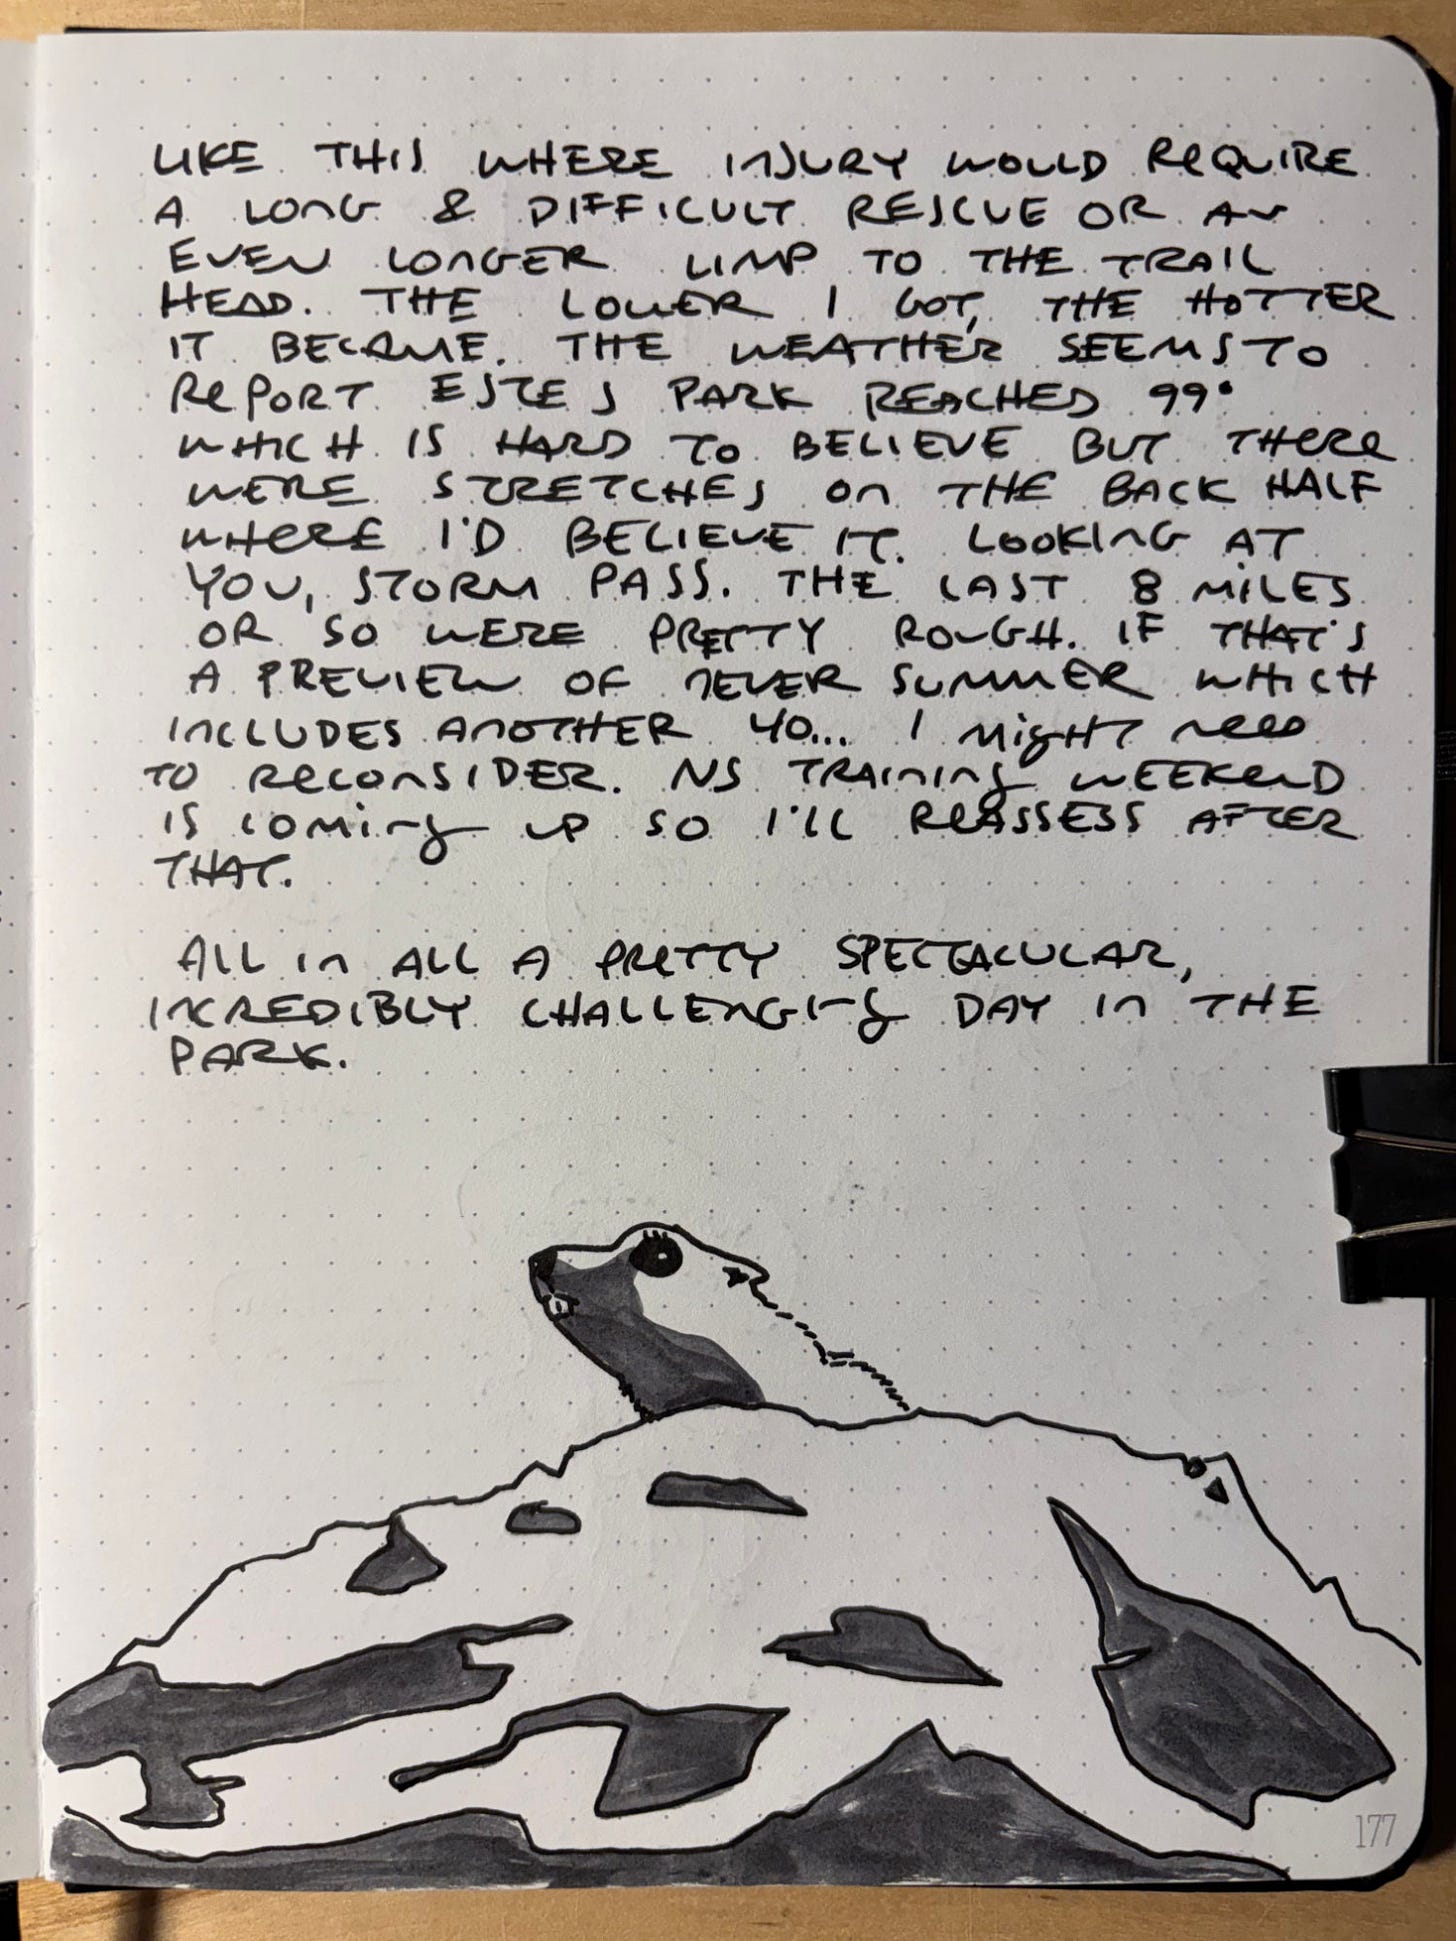 LIKE THIS WHERE INJURY WOULD REQUIRE
A LONG & DIFFICULT RESCUE OR AN
EVEN LONGER LIMP TO THE TRAIL
HEAD. THE LOWER I GOT, THE HOTTER
IT BECAME. THE WEATHER SEEMS TO
REPORT ESTES PARK REACHED 99°
WHICH IS HARD TO BELIEVE BUT THERE
WERE STRETCHES ON THE BACK HALF
WHERE I'D BELIEVE IT. LOOKING AT
YOU, STORM PASS. THE LAST 8 MILES
OR SO WERE PRETTY ROUGH. IF THAT'S
A PREVIEW OF NEVER SUMMER WHICH
INCLUDES ANOTHER 40... I MIGHT NEED
TO RECONSIDER. NS TRAINING WEEKEND
IS COMING UP SO I'LL REASSESS AFTER
THAT.
ALL IN ALL A PRETTY SPECTACULAR,
INCREDIBLY CHALLENGING DAY IN THE
PARK.
177